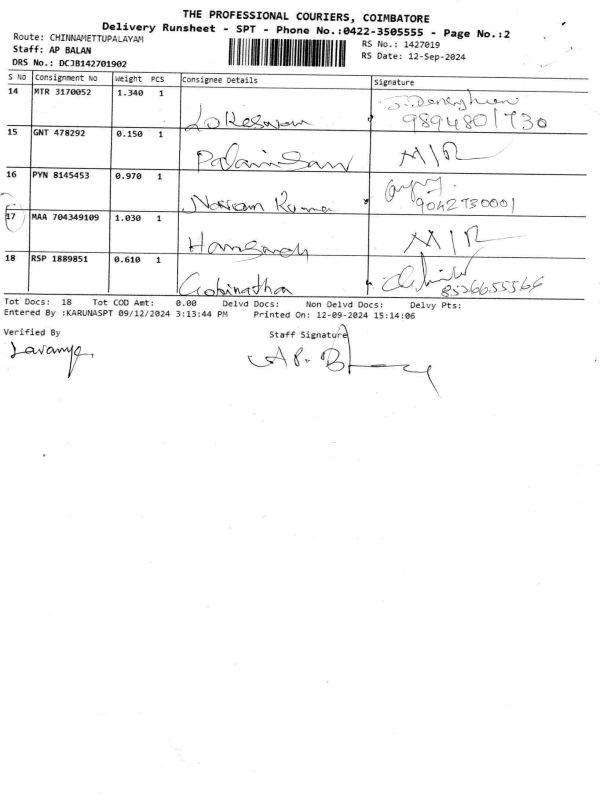 THE PROFESSIONAL COURIERS, COIMBATORE
Delivery Runsheet - SPT - Phone No.:0422-3505555 - Page No.:2
Route: CHINNAMETTUPALAYAM
RS No.: 1427019
Staff: AP BALAN
RS Date: 12-Sep-2024
DRS No.: DCJB142701902
S No Consignment No Weight PCS Consignee Details Signature
14 MTR 3170052 1.340 1
9894801730
15 GNT 478292 0.150 1
M/R
16 PYN 8145453 0.970 1
Naveen Kuma 9042730001
17 MAA 704349109 1.030 1
M/R
18 RSP 1889851 0.610 1
Gobinatha 8526655566
Tot Docs: 18 Tot COD Amt: 0.00 Delvd Docs: Non Delvd Docs: Delvy Pts:
Entered By :KARUNASPT 09/12/2024 3:13:44 PM Printed On: 12-09-2024 15:14:06
Verified By Staff Signature
Lavanya A P. B